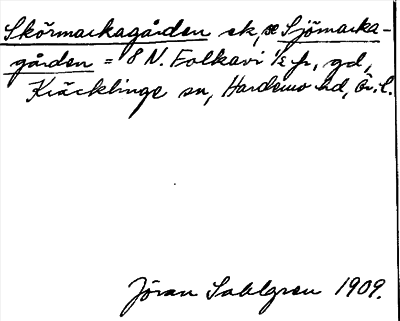 Skörmarkagården sk, se Sjömarka-
gården = 8 N. Folkavi ½ fr, gd,
Kräcklinge sn, Hardemo hd, Ör. l.
Jöran Sahlgren 1909.